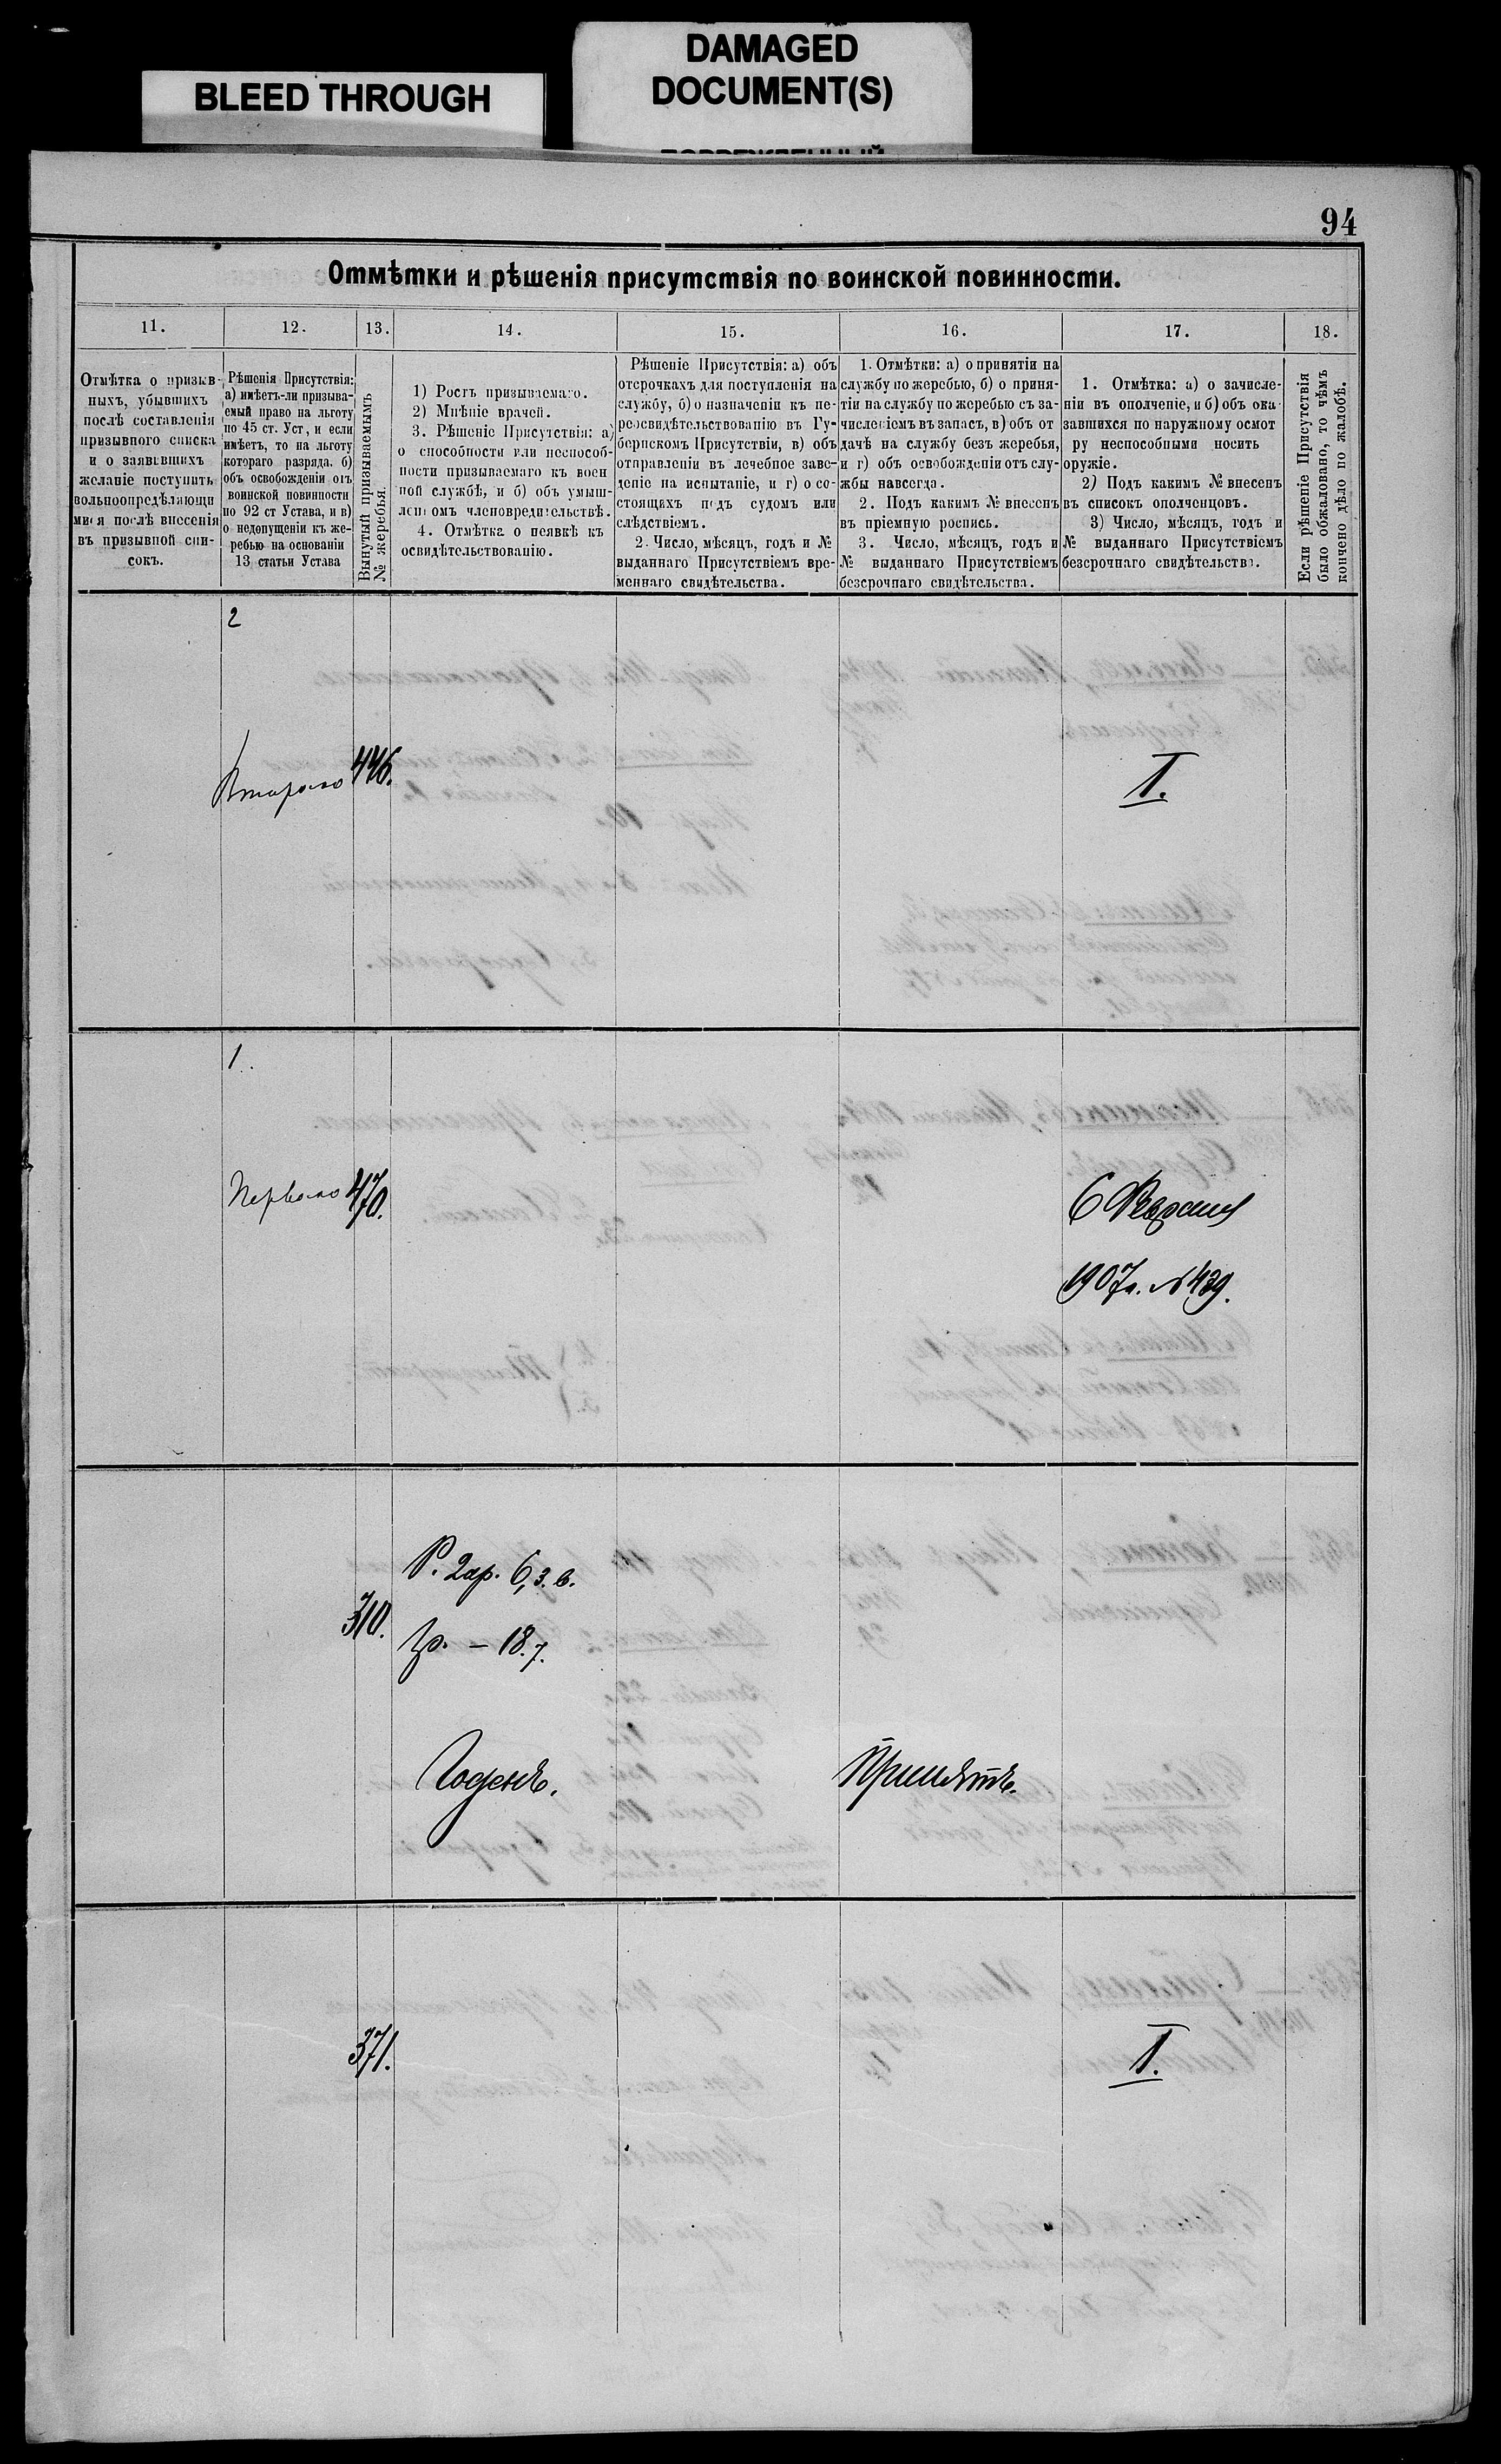 BLEED THROUGH
DAMAGED
DOCUMENT(S)
94
Отмѣтки и рѣшенія присутствія по воинской повинности.
11. 12. 13. 14. 15. 16. 17. 18.
Отмѣтка о призыв-
ныхъ, убывшихъ
послѣ составленія
призывного списка
и о заявившихъ
желаніе поступить
вольноопредѣляющи
мися послѣ внесенія
въ призывной спи-
сокъ.
Рѣшенія Присутствія:
а) имѣетъ-ли призыва-
емый право на льготу
по 45 ст. Уст, и если
имѣетъ, то на льготу
котораго разряда. б)
объ освобожденіи отъ
воинской повинности
по 92 ст Устава, и в)
о недопущеніи къ же-
ребью на основаніи
13 статьи Устава
Вынутый призываемымъ
№ жеребья.
1) Ростъ призываемаго.
2) Мнѣніе врачей.
3. Рѣшеніе Присутствія: а)
о способности или неспособ-
ности призываемаго къ воен
ной службѣ, и б) объ умыш-
леномъ членовредительствѣ.
4. Отмѣтка о неявкѣ къ
освидѣтельствованію.
Рѣшеніе Присутствія: а) объ
отсрочкахъ для поступленія на
службу, б) о назначеніи къ пе-
реосвидѣтельствованію въ Гу-
бернскомъ Присутствіи, в) объ
отправленіи въ лечебное заве-
деніе на испытаніе, и г) о со-
стоящихъ подъ судомъ или
слѣдствіемъ.
2. Число, мѣсяцъ, годъ и №
выданнаго Присутствіемъ вре-
меннаго свидѣтельства.
1. Отмѣтки: а) о принятіи на
службу по жеребью, б) о приня-
тіи на службу по жеребью съ за-
численіемъ въ запасъ, в) объ от
дачѣ на службу безъ жеребья,
и г) объ освобожденіи отъ слу-
жбы навсегда.
2. Подъ какимъ № внесенъ
въ пріемную роспись.
3. Число, мѣсяцъ, годъ и
№ выданнаго Присутствіемъ
безсрочнаго свидѣтельства.
1. Отмѣтка: а) о зачисле-
ніи въ ополченіе, и б) объ ока
завшихся по наружному осмот
ру неспособными носить
оружіе.
2) Подъ какимъ № внесенъ
въ списокъ ополченцовъ.
3) Число, мѣсяцъ, годъ и
№ выданнаго Присутствіемъ
безсрочнаго свидѣтельства.
Если рѣшеніе Присутствія
было обжаловано, то чѣмъ
кончено дѣло по жалобѣ.
2
Второго 446. I.
1.
Перваго 470. 6 Февраля
1907г. №439.
Р. 2ар. 6, 3. в.
310. – 18.7.
Годенъ. Принятъ.
371. I.